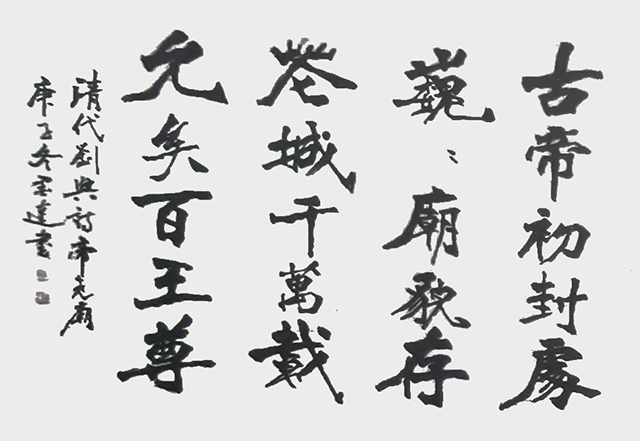 古帝初封處
巍々廟貌存
荒城千萬載
允矣百王尊
清代劉興詩帝堯廟
庚子冬 達書